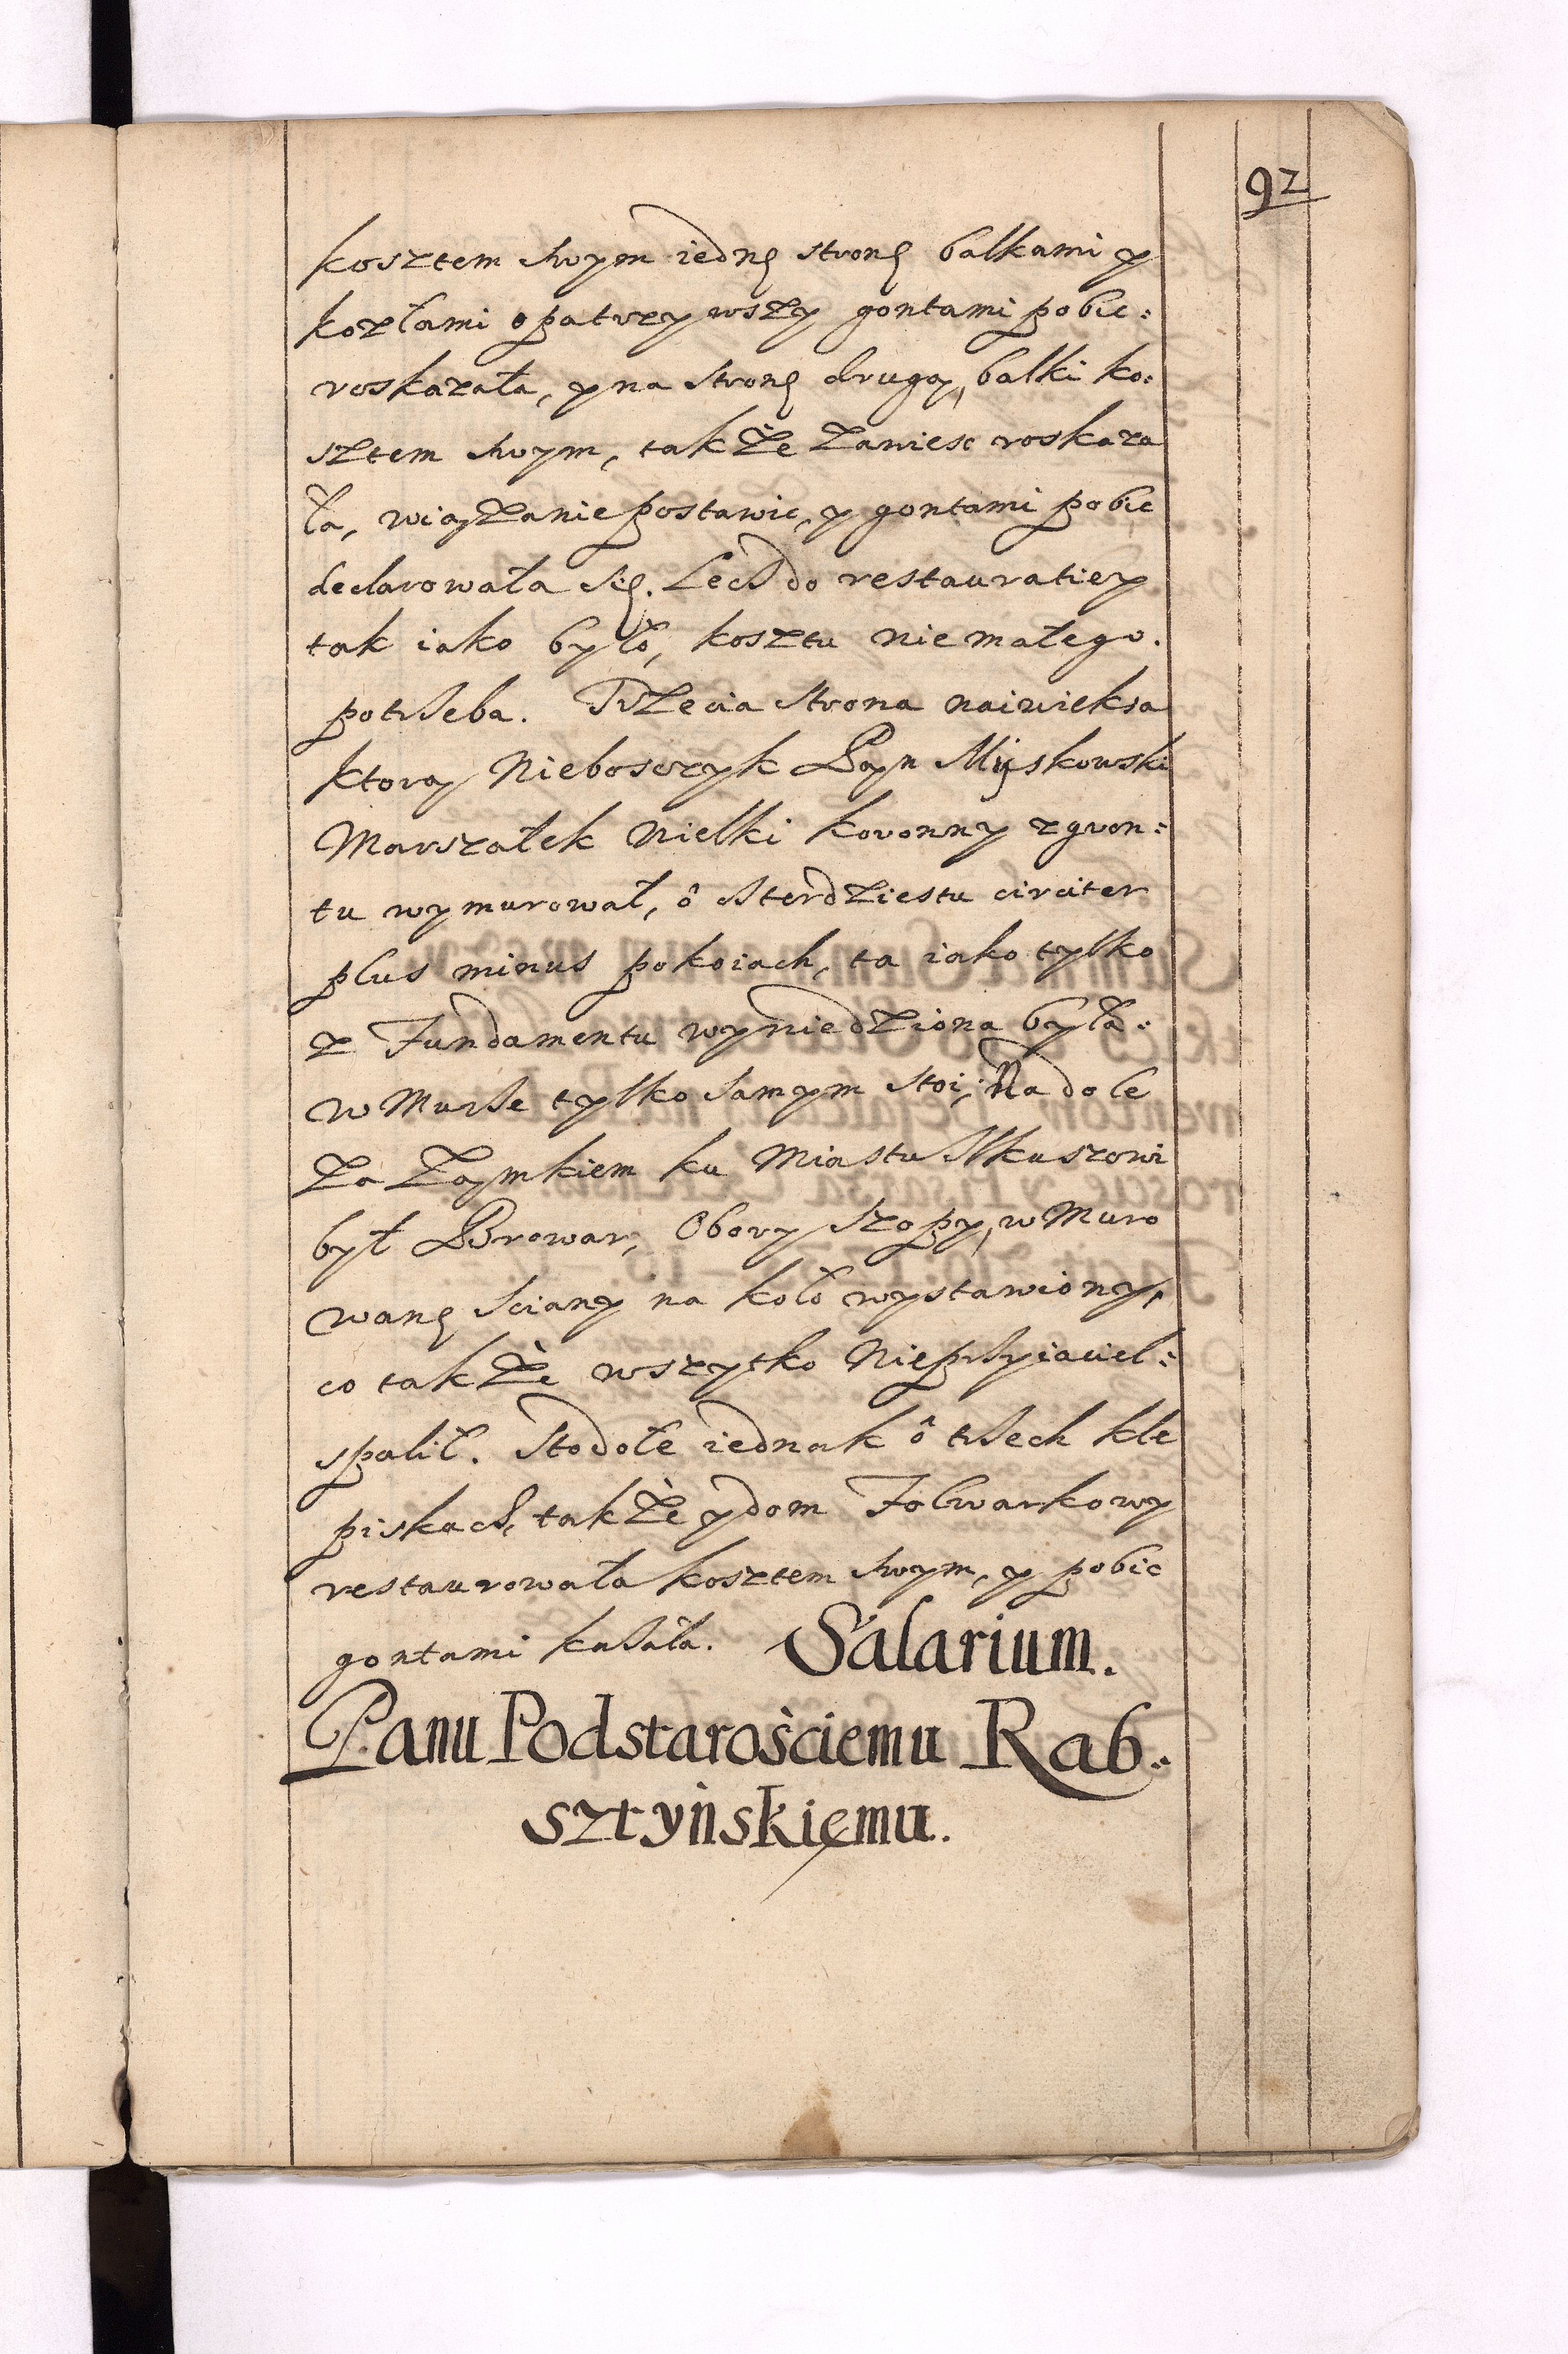 92
kosztem swym iednę stronę balkami y
kozłami opatrzywszy gontami pobic:
roskazała, y na stronę drugą, balki ko:
sztem swym, także zawiesc roskaza
ła, wiązanie postawic, y gontami pobic
declarowała się. Lecz do restauratiey
tak iako było, kosztu niemałego.
potrzeba. Trzecia strona naiwieksa
ktorą Nieboszczyk Pan Myskowski
Marszałek Wielki koronny z gron:
tu wymurował, ô czterdziestu circiter
plus minus pokoiach, ta iako tylko
z Fundamentu wyniedziona była:
w Murze tylko samym stoi, Na dole
za zamkiem ku Miastu Ilkuszowi
był Browar, Obory szopy, w Muro
wanę sciany na koło wystawiony,
co także wszytko Nieprzyiaciel:
spalił. Stodołe iednak ô trzech kle
piskach, także y dom Folwarkowy
restaurowała kosztem swym, y pobic
gontami kazała. Salarium.
Panu Podstarościemu Rab:
sztyńskiemu.